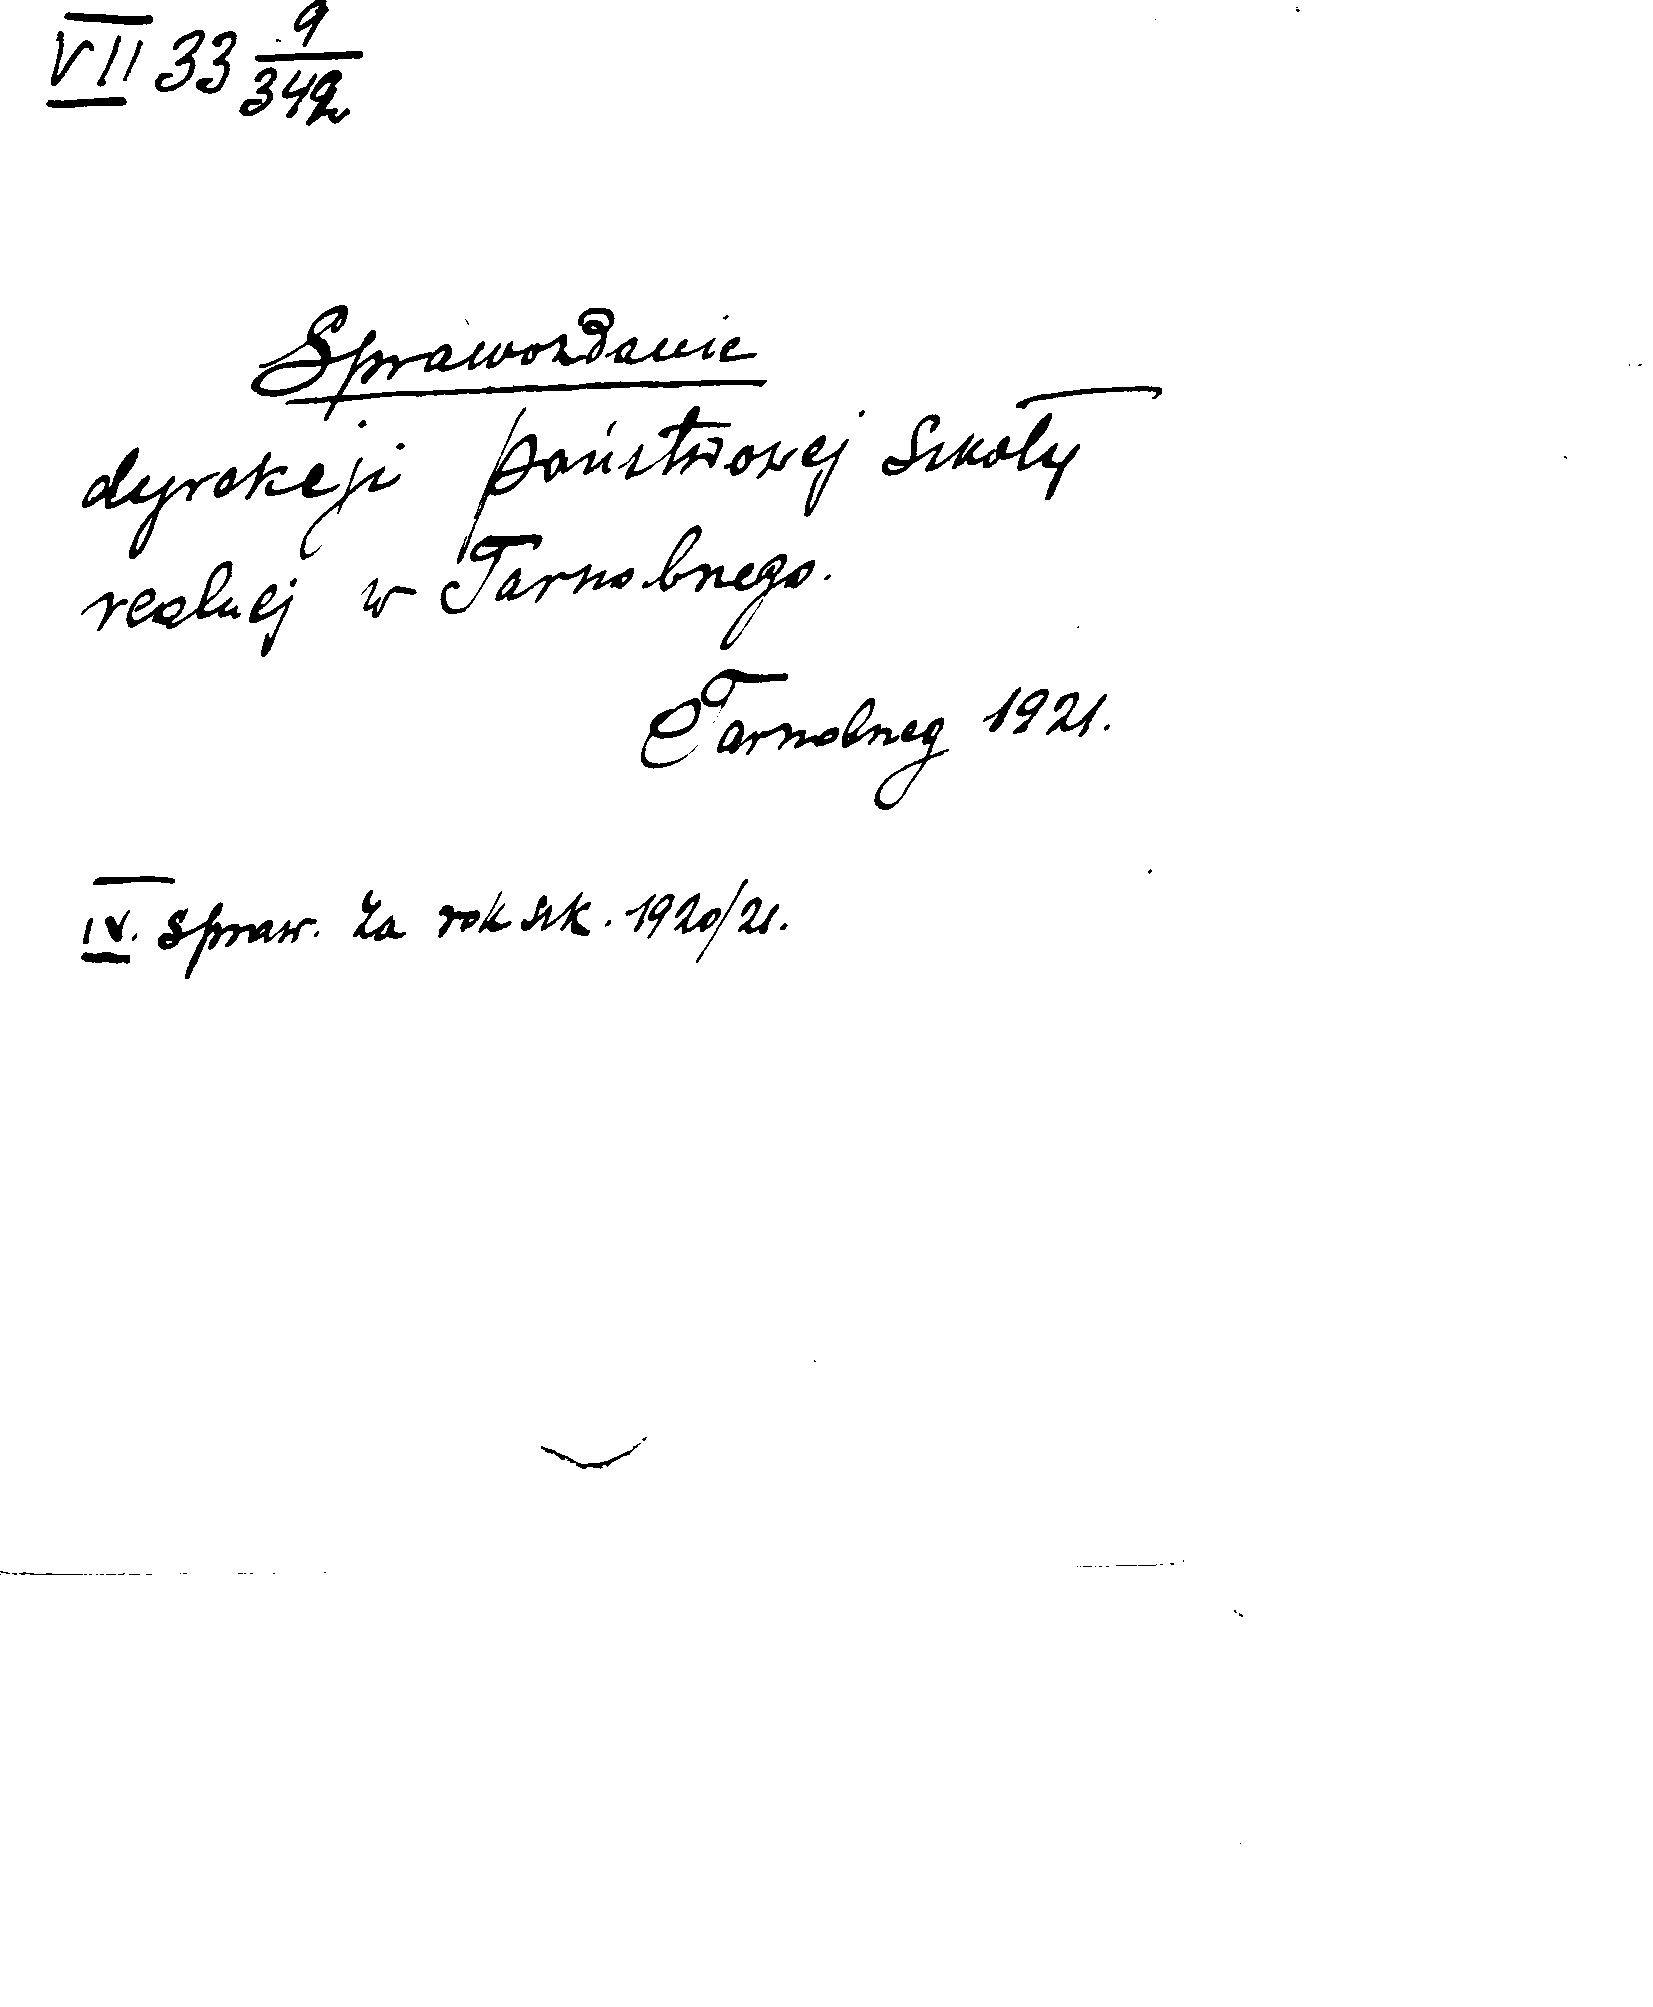 VII 33 9/342
Sprawozdanie
dyrekcji państwowej szkoły
realnej w Tarnobrzegu.
Tarnobrzeg 1921.
IV. spraw. za rok szk. 1920/21.